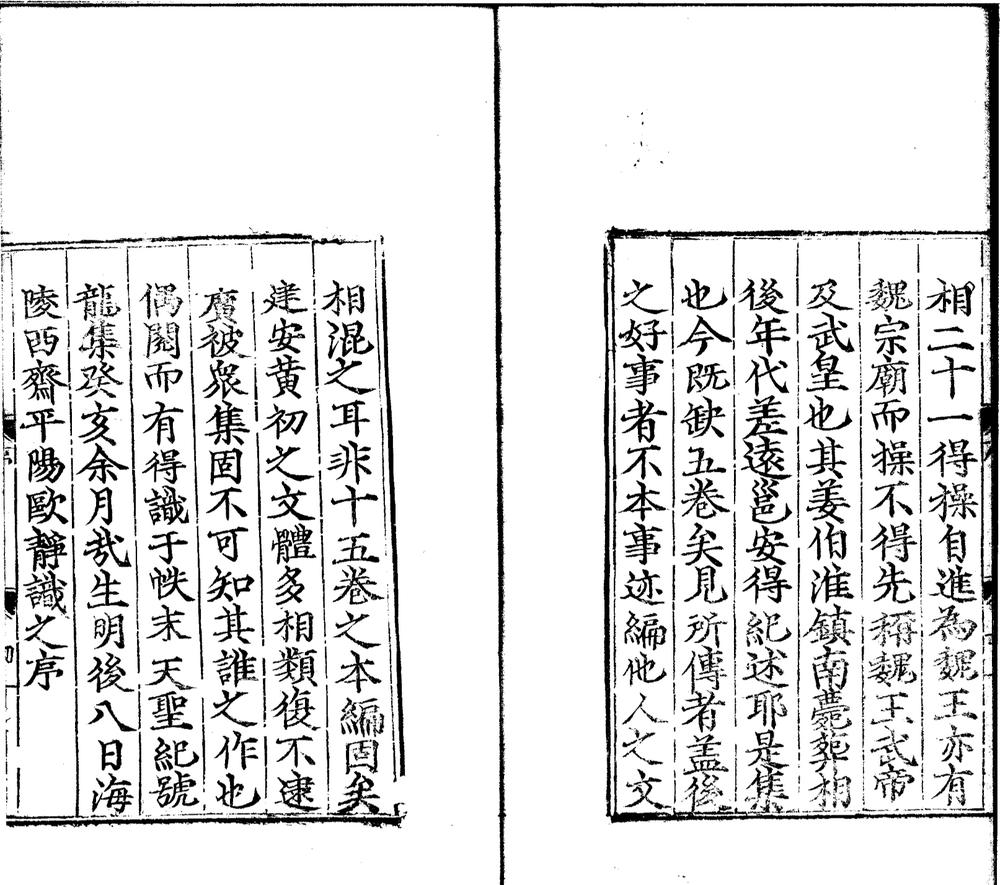 相二十一得操自進為魏王亦有
魏宗廟而操不得先稱魏王武帝
及武皇也其姜伯淮鎮南薨葬相
後年代差遠邕安得紀述耶是集
也今既缺五卷矣見所傳者盖後
之好事者不本事迹編他人之文
相混之耳非十五卷之本編固矣
建安黄初之文體多相類復不逮
廣被衆集固不可知其誰之作也
偶閱而有得識于帙末天聖紀號
龍集癸亥余月哉生明後八日海
陵西齋平陽歐靜識之序
序